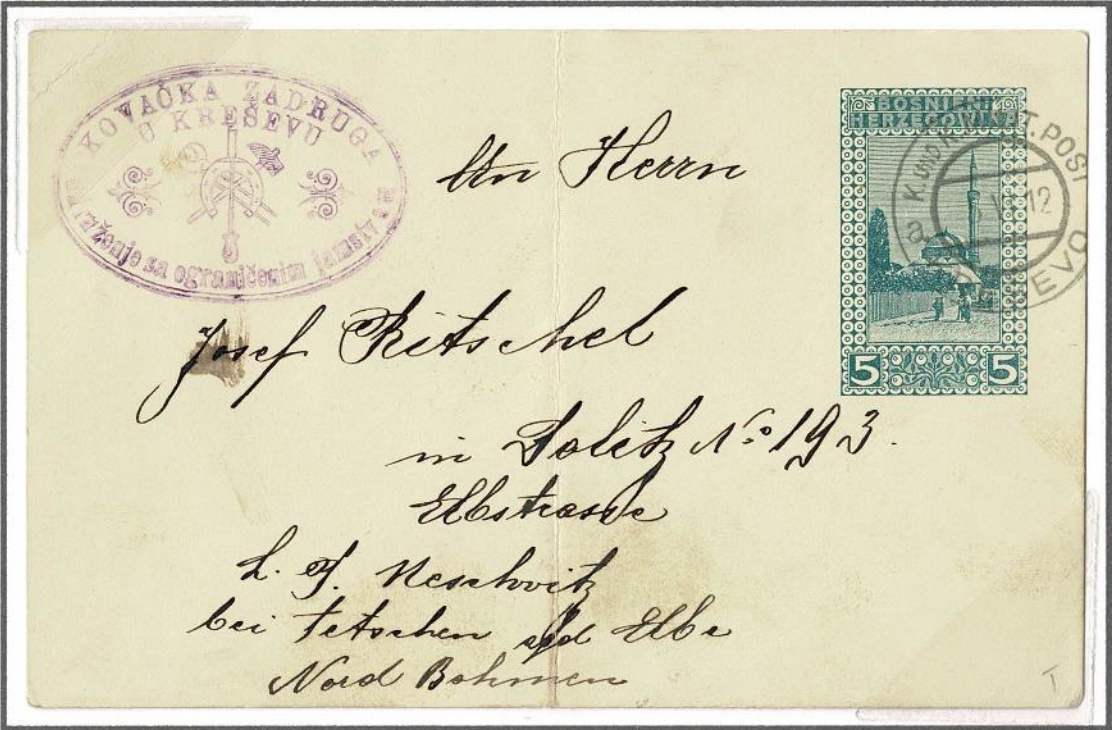 KOVAČKA ZADRUGA
U KREŠEVU
udruženje sa ograničenim jamstvom
BOSNIEN
HERZEGOWINA
K. UND K. MILIT. POST
a 12
KREŠEVO
5 5
An Herrn
Josef Ritschel
in No 193.
Elbstrasse
L. P. Neschwitz
bei Tetschen a/d Elbe
Nord Bohmen
T